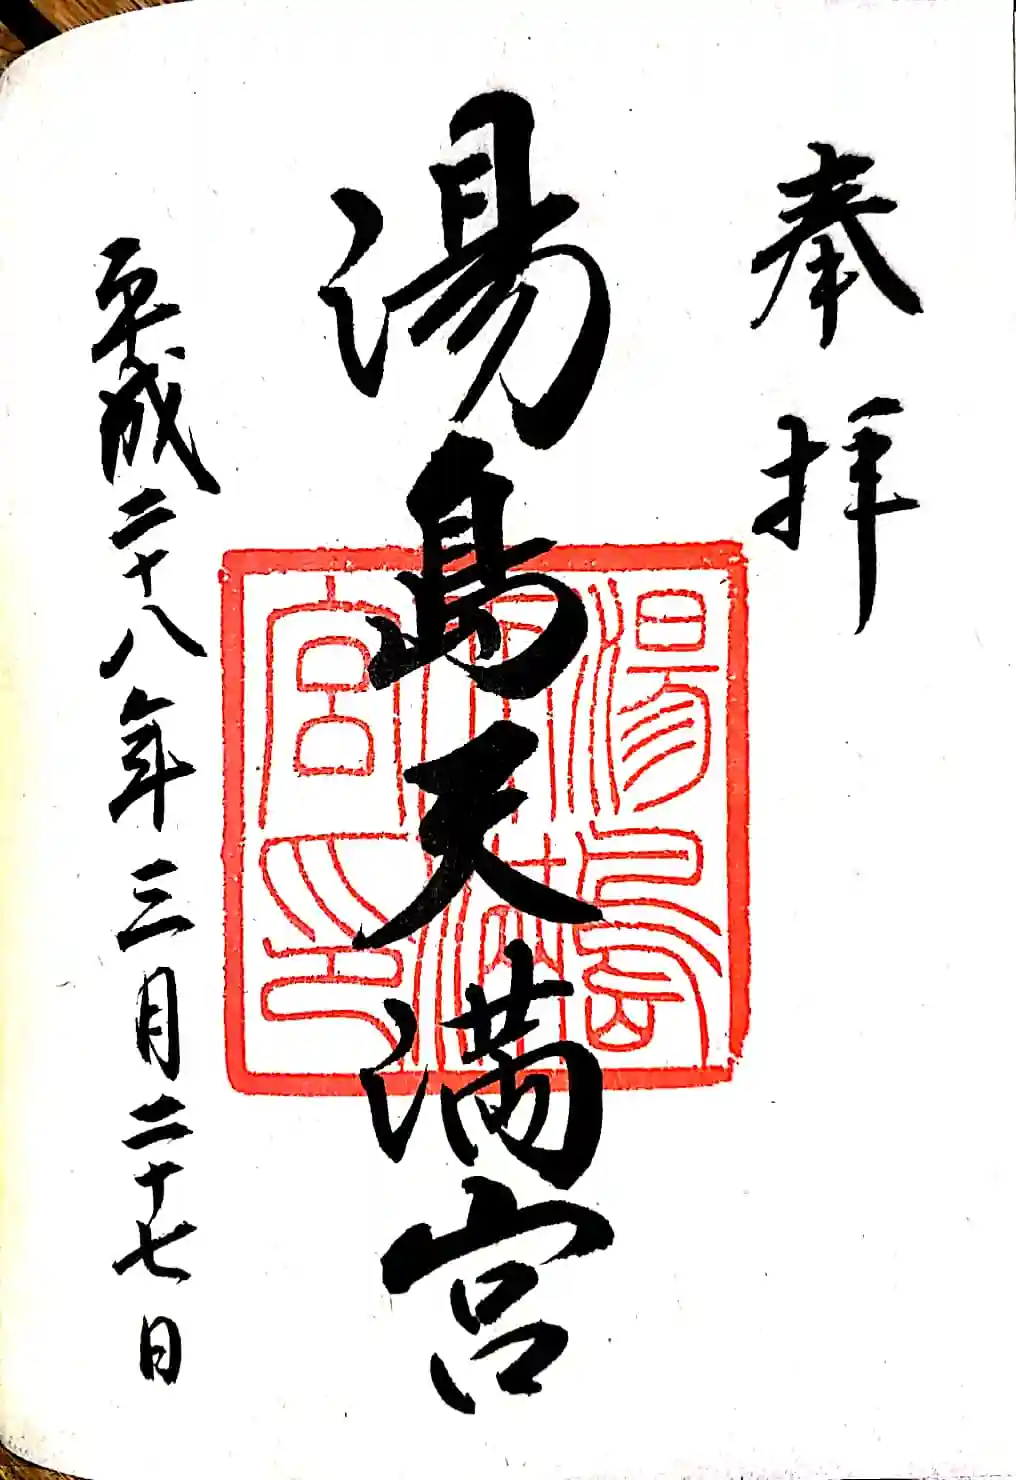 奉拝
湯島天満宮
湯島
天満
宮印
平成二十八年三月二十七日